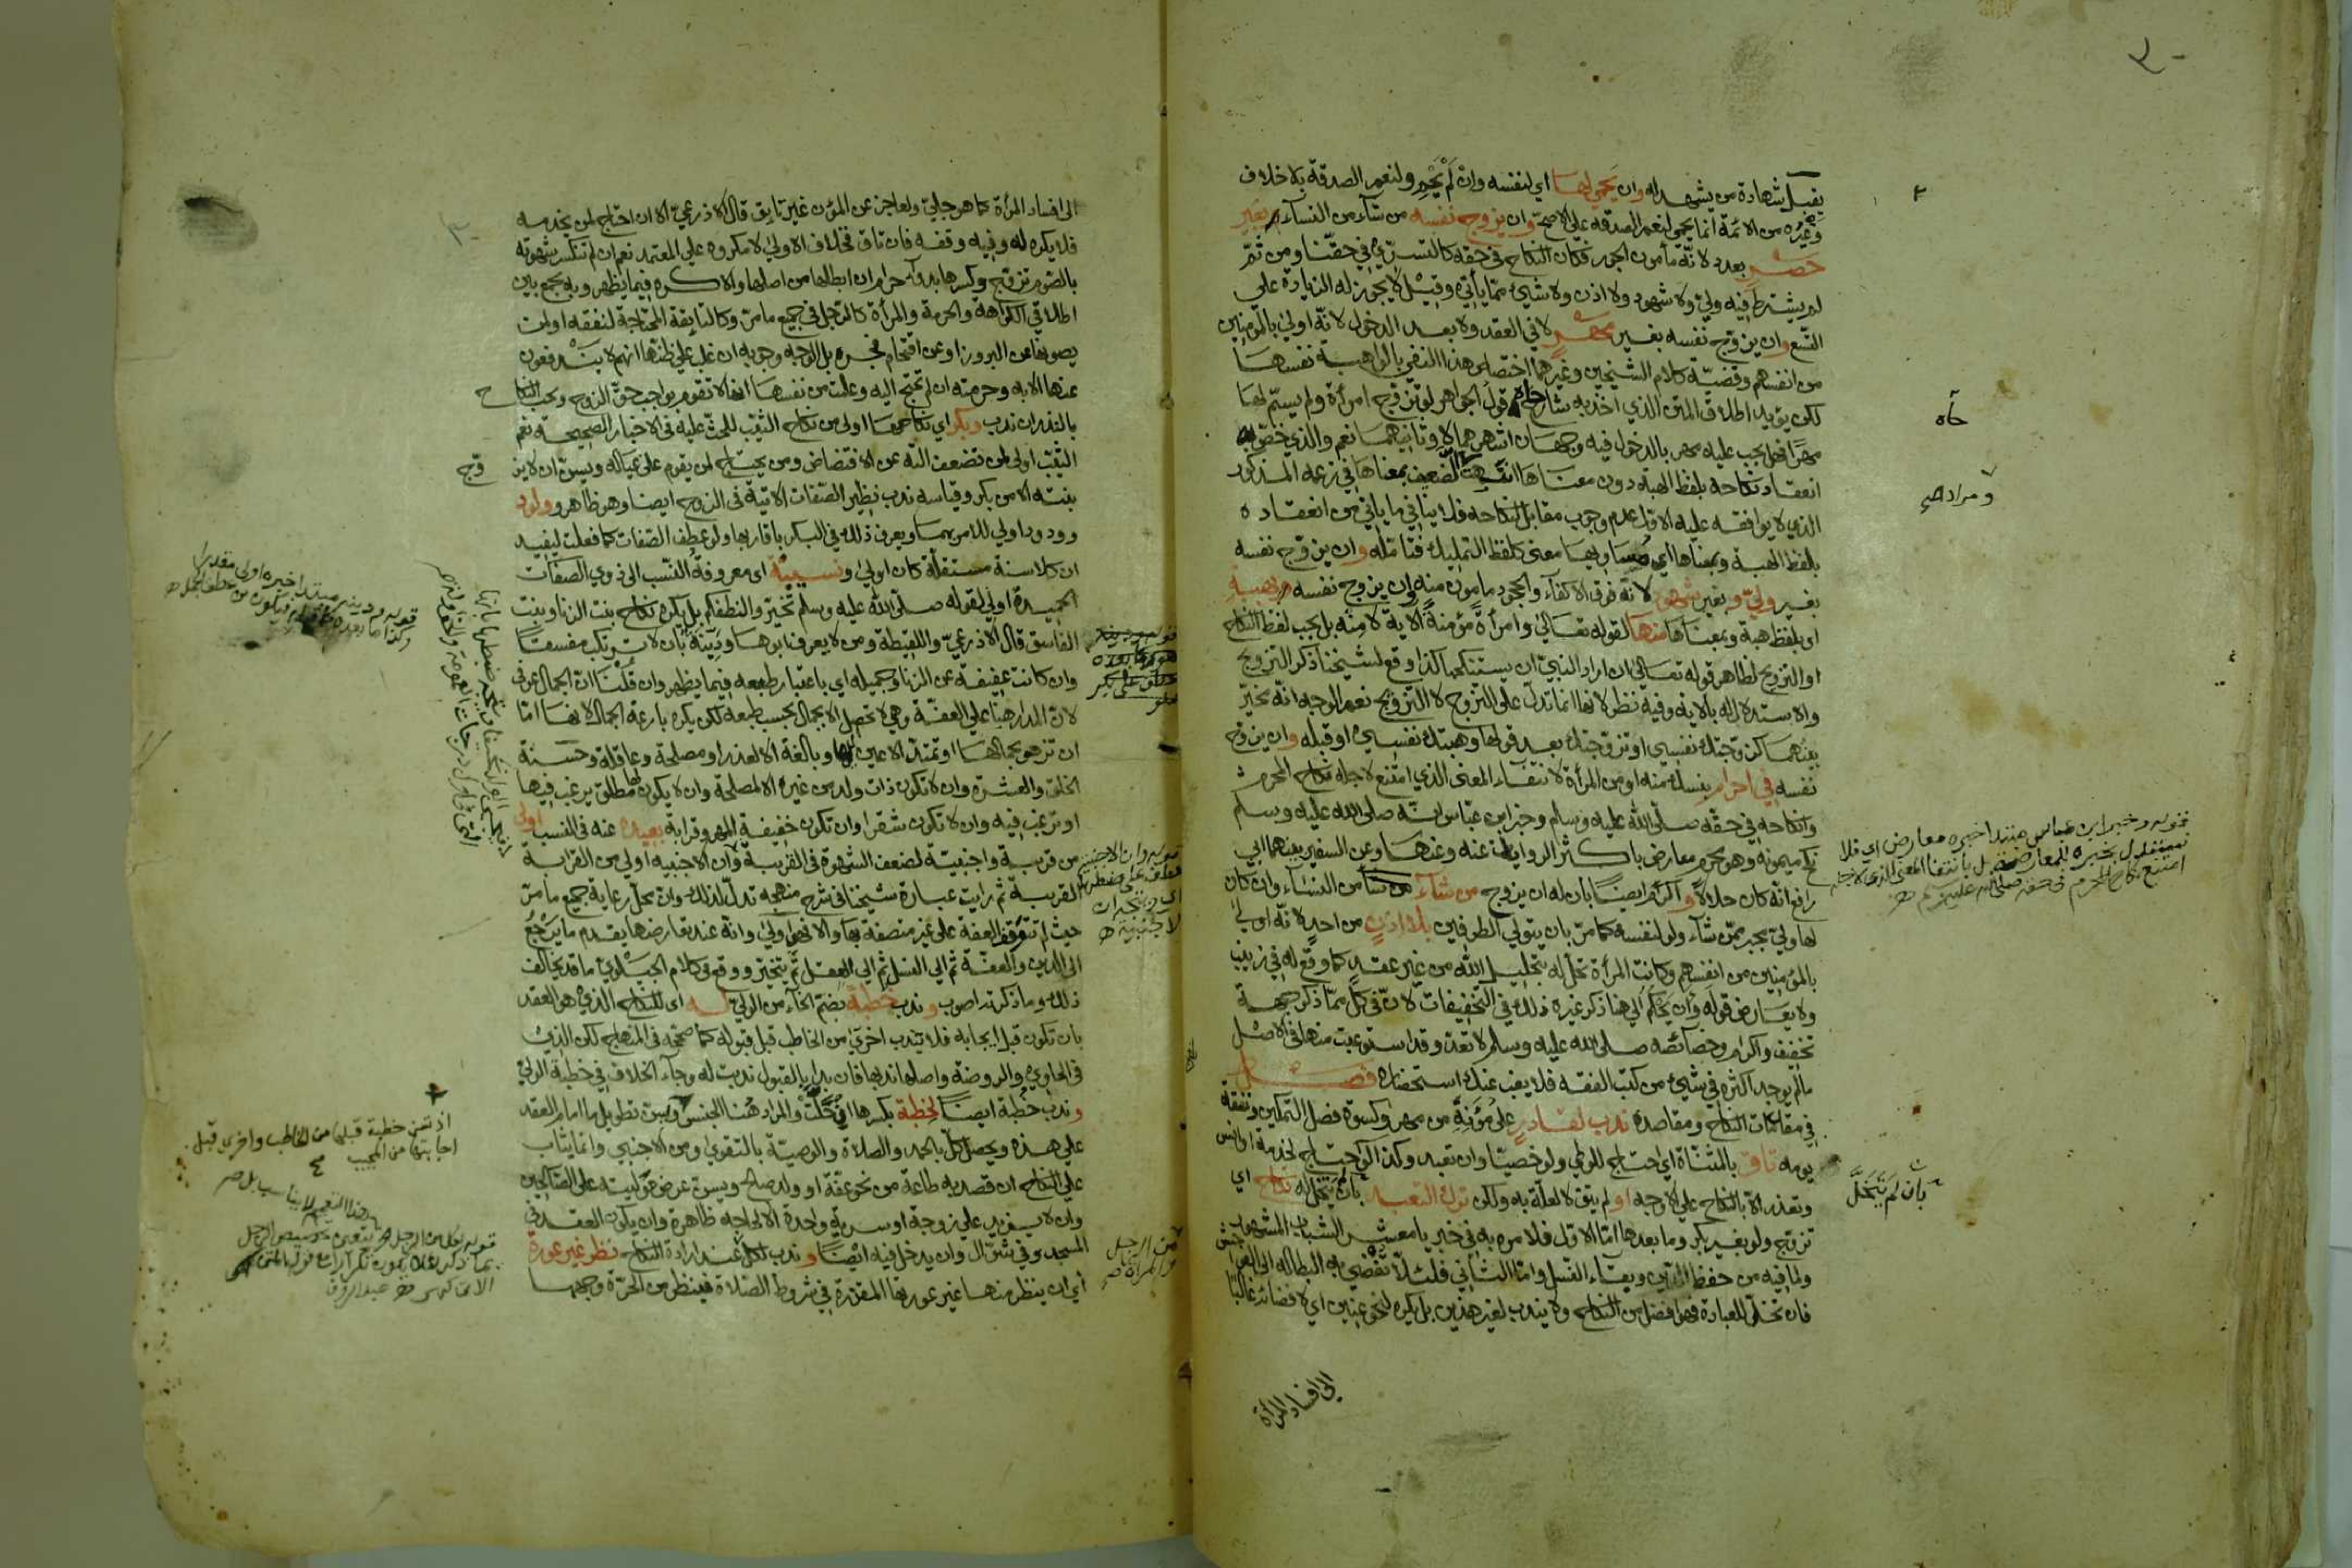 يقبل شهادة من يشهد له وان يحمي لها اي لنفسه وان لم يحم ولنعم الصدقة بلا خلاف
وغيره من الائمة انما يحمى لنعم الصدقه على الاصح وان يزوج نفسه من شاء من النساء بغير
حصر بعدد لانه مأمون الجور فكان النكاح في حقه كالتسري في حقنا ومن ثم
لم يشترط فيه ولي ولا شهود ولا اذن ولا شيئ مما يأتي وقيل لا يجوز له الزيادة علي
التسع وان يزوج نفسه بغير مهر لا في العقد ولا بعد الدخول لانه اولي بالمؤمنين
من انفسهم وقضية كلام الشيخين وغيرهما اختصاص هذا النفي بالواهبة نفسها
لكن يؤيد اطلاق المتن الذي اخذ به شارح قول الجواهر لو تزوج امرأة ولم يسم لها
مهرا فهل يجب عليه مهر بالدخول فيه وجهان اشهرهما لا وثانيهما نعم والذي خص به
انعقاد نكاحه بلفظ الهبة دون معناها الضعيف بمعناها في زعمه المذكور
الذي لا يوافقه عليه الاول عدم وجوب مقابل النكاحه فلا ينافي ما ياتي من انعقاده
بلفظ الهبة وبمعناها اي مساويها معنى كلفظ التمليك فتأمله وان يزوج نفسه
بغير ولي وبغير شهود لانه فوق الاكفاء والجحود مامون منه وان يزوج نفسه بهبة
اى بلفظ هبة وبمعناها منها لقوله تعالى وامرأة مؤمنة الاية لا منه بل يجب لفظ النكاح
او التزويج لظاهر قوله تعالى ان اراد النبي ان يستنكحها كذا وقع لشيخنا ذكر التزويج
والاستدلال له بالاية وفيه نظر لانها انما تدل على التزوج لا التزويج نعم الوجه انه تخير
بينهما كزوجتك نفسي او تزوجتك بعد قولها وهبتك نفسي او قبله وان يزوج
نفسه في احرام بنسك منه او من المرأة لانتفاء المعنى الذي امتنع لاجله نكاح المحرم
وانكاحه في حقه صلى الله عليه وسلم وخبر ابن عباس انه صلى الله عليه وسلم
نكح ميمونه وهو محرم معارض باكثر الروايات عنه وعنها وعن السفير بينهما ابي
رافع انه كان حلالا واكرم ايضا بان له ان يزوج من شاء من النساء وان كان
لها ولي مجبر ممن شاء ولو لنفسه كما مر بان يتولي الطرفين بلا اذن من احد لانه اولي
بالمؤمنين من انفسهم وكانت المرأة تحل له بتحليل الله من غير عقد كما وقع له في زينب
ولا يعارض قوله وان يحكم الي هنا ذكر غيره ذلك في التخفيفات لان في كل مما ذكر جهة
تخفيف واكرام وخصائصه صلى الله عليه وسلم لا تعد وقد استوعبت منها في الاصل
مالم يوجد اكثره في شيئ من كتب الفقه فلا يغب عنك استحضاره فصل
في مقدمات النكاح ومقاصده ندب لقادر على مؤنة من مهر وكسوة فصل التمكين ونفقة
يومه تاق بالمثناة اي احتاج للوطي ولو خصيا وان تعبد وكذا لو احتاج لخدمة او انس
وتعذر الا بالنكاح علي الاوجه او لم يتق لا لعلة به ولكن ترك التعبد بان لم يتخل له نكاح اي
تزوج ولو بغير بكر وما بعدها امّا الاول فلامره به في خبر يا معشر الشباب المشهور
ولما فيه من حفظ الدين وبقاء النسل وامّا الثاني فلئلا تفضي به البطاله الى الفواحش
فان تخلى للعبادة فهو افضل من النكاح ولا يندب لغير هذين بل يكره لنحو عنين اي لافضائه غالبا
الي افساد المرأة
حاه
ومراده
بان لم يتخل
قوله وخبر ابن عباس مبتدا خبره معارض اي فلا
يستدل بخبره للمعارضة بل بانتفا المعنى الذي لاجله
امتنع نكاح المحرم في حقه صلى الله عليه وسلم
الى افساد المرأة كما هو جلي ولعاجز عن المؤن غير تايق قال الاذرعي الا ان احتاج لمن يخدمه
فلا يكره له وفيه وقفه فان تاق فخلاف الاولى لا مكروه على المعتمد نعم ان لم تنكسر شهوته
بالصوم تزوج وكسرها بدواء حرام ان ابطلها من اصلها والا كره فيما يظهر وبه يجمع بين
اطلاقي الكراهة والحرمة والمرأة كالرجل في جميع ما مر وكالتايقة المحتاجة لنفقه او لمن
يصونها عن البروز او عن اقتحام فجره بل الاوجه وجوبه ان غلب على ظنها انهم لا يندفعون
عنها الا به وحرمته ان لم تحتج اليه وعلمت من نفسها انها لا تقوم بواجب حق الزوج ويجب النكاح
بالنذر ان ندب وبكر اي نكاحها اولى من نكاح الثيب للحث عليه في الاخبار الصحيحة نعم
الثيب اولى لمن تضعف الته عن الافتضاض ومن يحتاج لمن يقوم على عياله ويسن ان لا يزوج
بنته الا من بكر وقياسه ندب نظير الصفات الاتية في الزوج ايضا وهو ظاهر وولود
وودود اولي للامر بهما ويعرف ذلك في البكر باقاربها ولو عطف الصفات كما فعلت ليفيد
ان كلا سنة مستقلة كان اولي ونسيبة اى معروفة النسب الى ذوي الصفات
الحميدة اولي لقوله صلى الله عليه وسلم تخيروا لنطفكم بل يكره نكاح بنت الزنا وبنت
الفاسق قال الاذرعي واللقيطة ومن لا يعرف ابوها ودينة بان لا ترتكب مفسقا
وان كانت عفيفة عن الزنا وجميله اي باعتبار طبعه فيما يظهر وان قلنا ان الجمال عرفي
لان المدار هنا على العفة وهي لا تحصل الا بجمال بحسب طبعه لكن يكره بارعة الجمال لانها امّا
ان تزهو بجمالها او تمتد الاعين لها وبالغة الا لعذر او مصلحة وعاقلة وحسنة
الخلق والعشرة وان لا تكون ذات ولد من غيره الا لمصلحة وان لا يكون لها مطلق يرغب فيها
او ترغب فيه وان لا تكون شقرا وان تكون خفيفة المهر وقرابة بعيدة عنه في النسب اولى
من قريبة واجنبية لضعف الشهوة في القريبة وان الاجنبيه اولي من القرابة
القريبة ثم رايت عبارة شيخنا في شرح منهجه تدل لذلك وان محل رعاية جميع ما مر
حيث لم تتوقف العفة على غير متصفة بها والا فهي اولي وانه عند تعارضها يقدم ما يرجع
الى الدين والعفة ثم الي النسل ثم الي العقل ثم يتخير ووقع في كلام الجيلوي ما قد يخالف
ذلك وما ذكرته اصوب وندب خطبة بضم الخاء من الولي له اى للنكاح الذي هو العقد
بان تكون قبل ايجابه فلا يندب اخرى من الخاطب قبل قبوله كما صححه في المنهاج لكن الذي
في الحاوي والروضة واصلها ندبها فان بدا بالقبول ندبت له وجاء الخلاف في خطبة الولي
وندب خطبة ايضا لخطبة بكسرها ان حلت والمراد هنا الجنس ويسن تطويل ما امام العقد
علي هذه ويحصل كل بالحمد والصلاة والوصية بالتقوي ومن الاجنبي وانما يثاب
علي النكاح ان قصد به طاعة من نحو عفة او ولد صالح ويسن عرض موليته على الصالحين
وان لا يزيد علي زوجة او سرية واحدة الا لحاجه ظاهرة وان يكون العقد في
المسجد وفي شوال وان يدخل فيه ايضا وندب لكل عند ارادة النكاح نظر غير عورة
أي ان ينظر منها غير عورتها المقررة في شروط الصلاة فينظر من الحرة وجهها
اذ تسن خطبة قبلها من الخاطب واخري قبل
اجابتها من المجيب
من الرجل
والمرأة